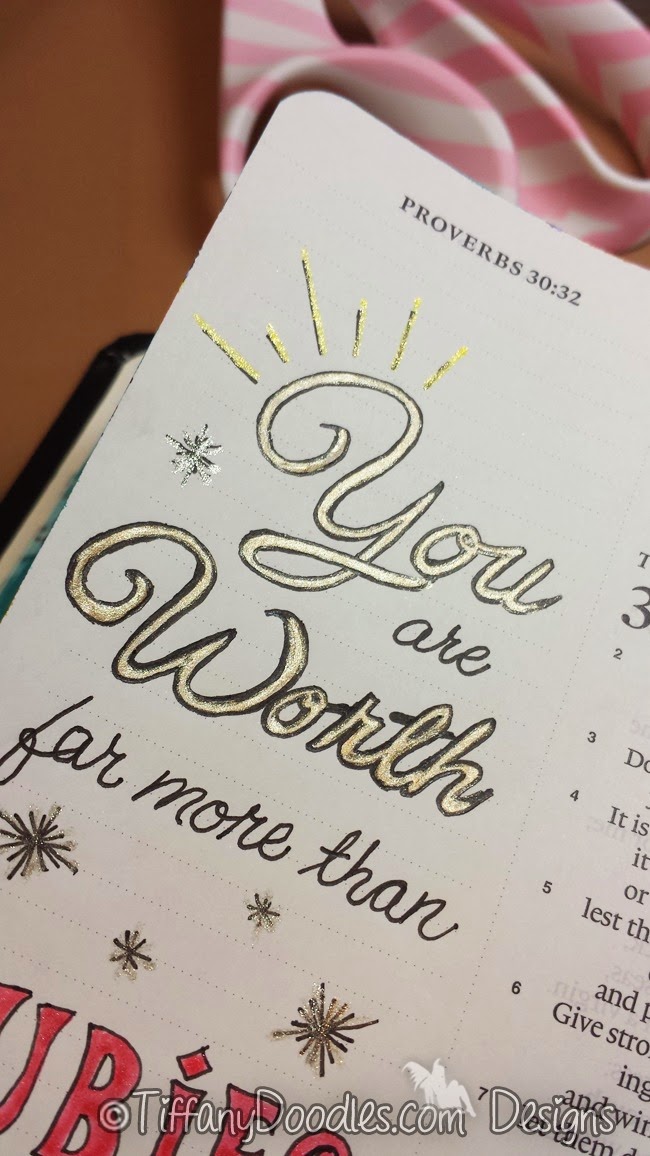 PROVERBS 30:32
You
are
Worth
far more than
UBiES
T
3
2
3 Do
4 It is
it
or
5 lest th
and p
6 Give stro
ing
7 and win
let them d
©TiffanyDoodles.com Designs